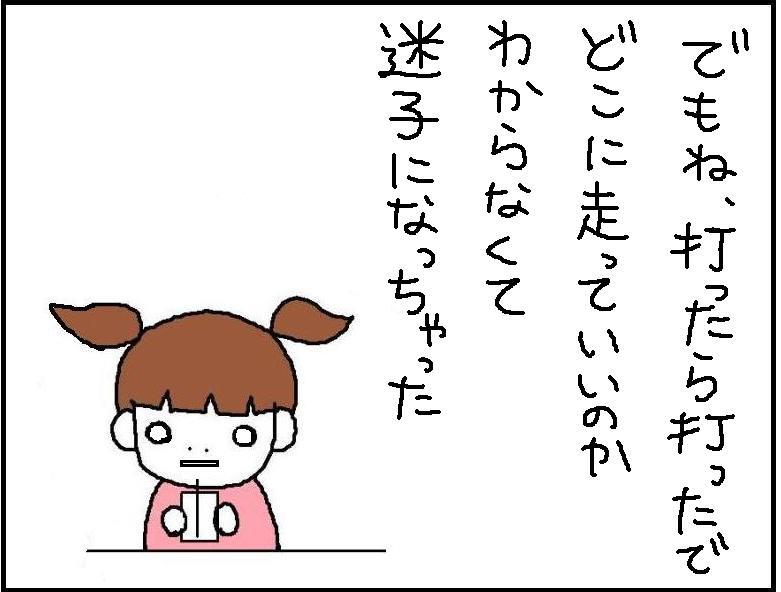 でもね、打ったら打ったで
どこに走っていいのか
わからなくて
迷子になっちゃった